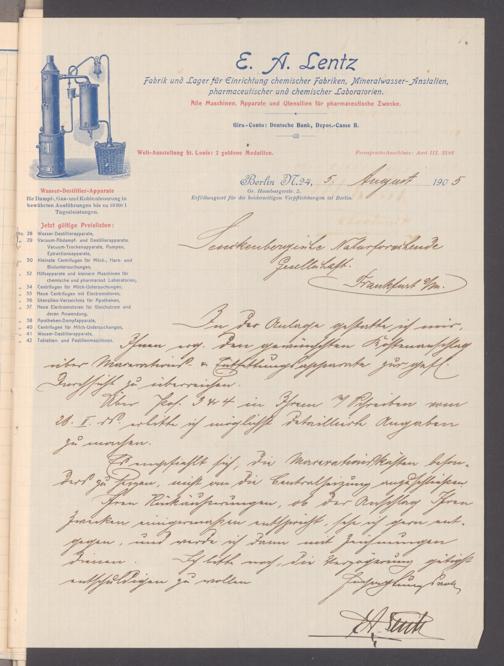 E. A. Lentz
Fabrik und Lager für Einrichtung chemischer Fabriken, Mineralwasser-Anstalten,
pharmaceutischer und chemischer Laboratorien.
Alle Maschinen, Apparate und Utensilien für pharmaceutische Zwecke.
Giro-Conto: Deutsche Bank, Depos.-Casse B.
Welt-Ausstellung St. Louis: 2 goldene Medaillen.
Fernsprech-Anschluss: Amt III,
Berlin N.24, 5. August 1905
Gr. Hamburgerstr. 2.
Erfüllungsort für die beiderseitigen Verpflichtungen ist Berlin.
Wasser-Destillier-Apparate
für Dampf-, Gas- und Kohlenheizung in
bewährten Ausführungen bis zu 10000 l
Tagesleistungen.
Jetzt gültige Preislisten:
No. 28 Wasser-Destillierapparate,
29 Vacuum-Abdampf- und Destillierapparate,
Vacuum-Trockenapparate, Pumpen,
Extractionsapparate,
30 Kleinste Centrifugen für Milch-, Harn- und
Blutuntersuchungen,
32 Hilfsapparate und kleinere Maschinen für
chemische und pharmaceut. Laboratorien,
34 Centrifugen für Milch-Untersuchungen,
35 Neue Centrifugen mit Electromotoren,
36 Utensilien-Verzeichnis für Apotheken,
37 Neue Electromotoren für Gleichstrom und
deren Anwendung,
38 Apotheken-Dampfapparate,
40 Centrifugen für Milch-Untersuchungen,
41 Wasser-Destillierapparate,
42 Tabletten- und Pastillenmaschinen.
Senckenbergische Naturforschende
Gesellschaft
Frankfurt a/m.
In der Anlage gestatte ich mir,
Ihnen den gewünschten Kostenanschlag
über Macerations- & Entfettungsapparate zur gefl.
Durchsicht zu überreichen.
Über Pos. 3 & 4 in Ihrem Schreiben vom
26. ds. erbitte ich möglichst detaillierte Angaben
zu machen.
Es empfiehlt sich, die Macerationskästen beson-
ders zu heizen, nicht an die Centralheizung anzuschließen
Ihren Rückäusserungen, ob der Anschlag Ihren
Zwecken einigermaßen entspricht, sehe ich gern ent-
gegen, und werde ich dann mit Zeichnungen
dienen. Ich bitte noch, die Verzögerung gütigst
entschuldigen zu wollen
Hochachtungsvoll
EA. Lentz